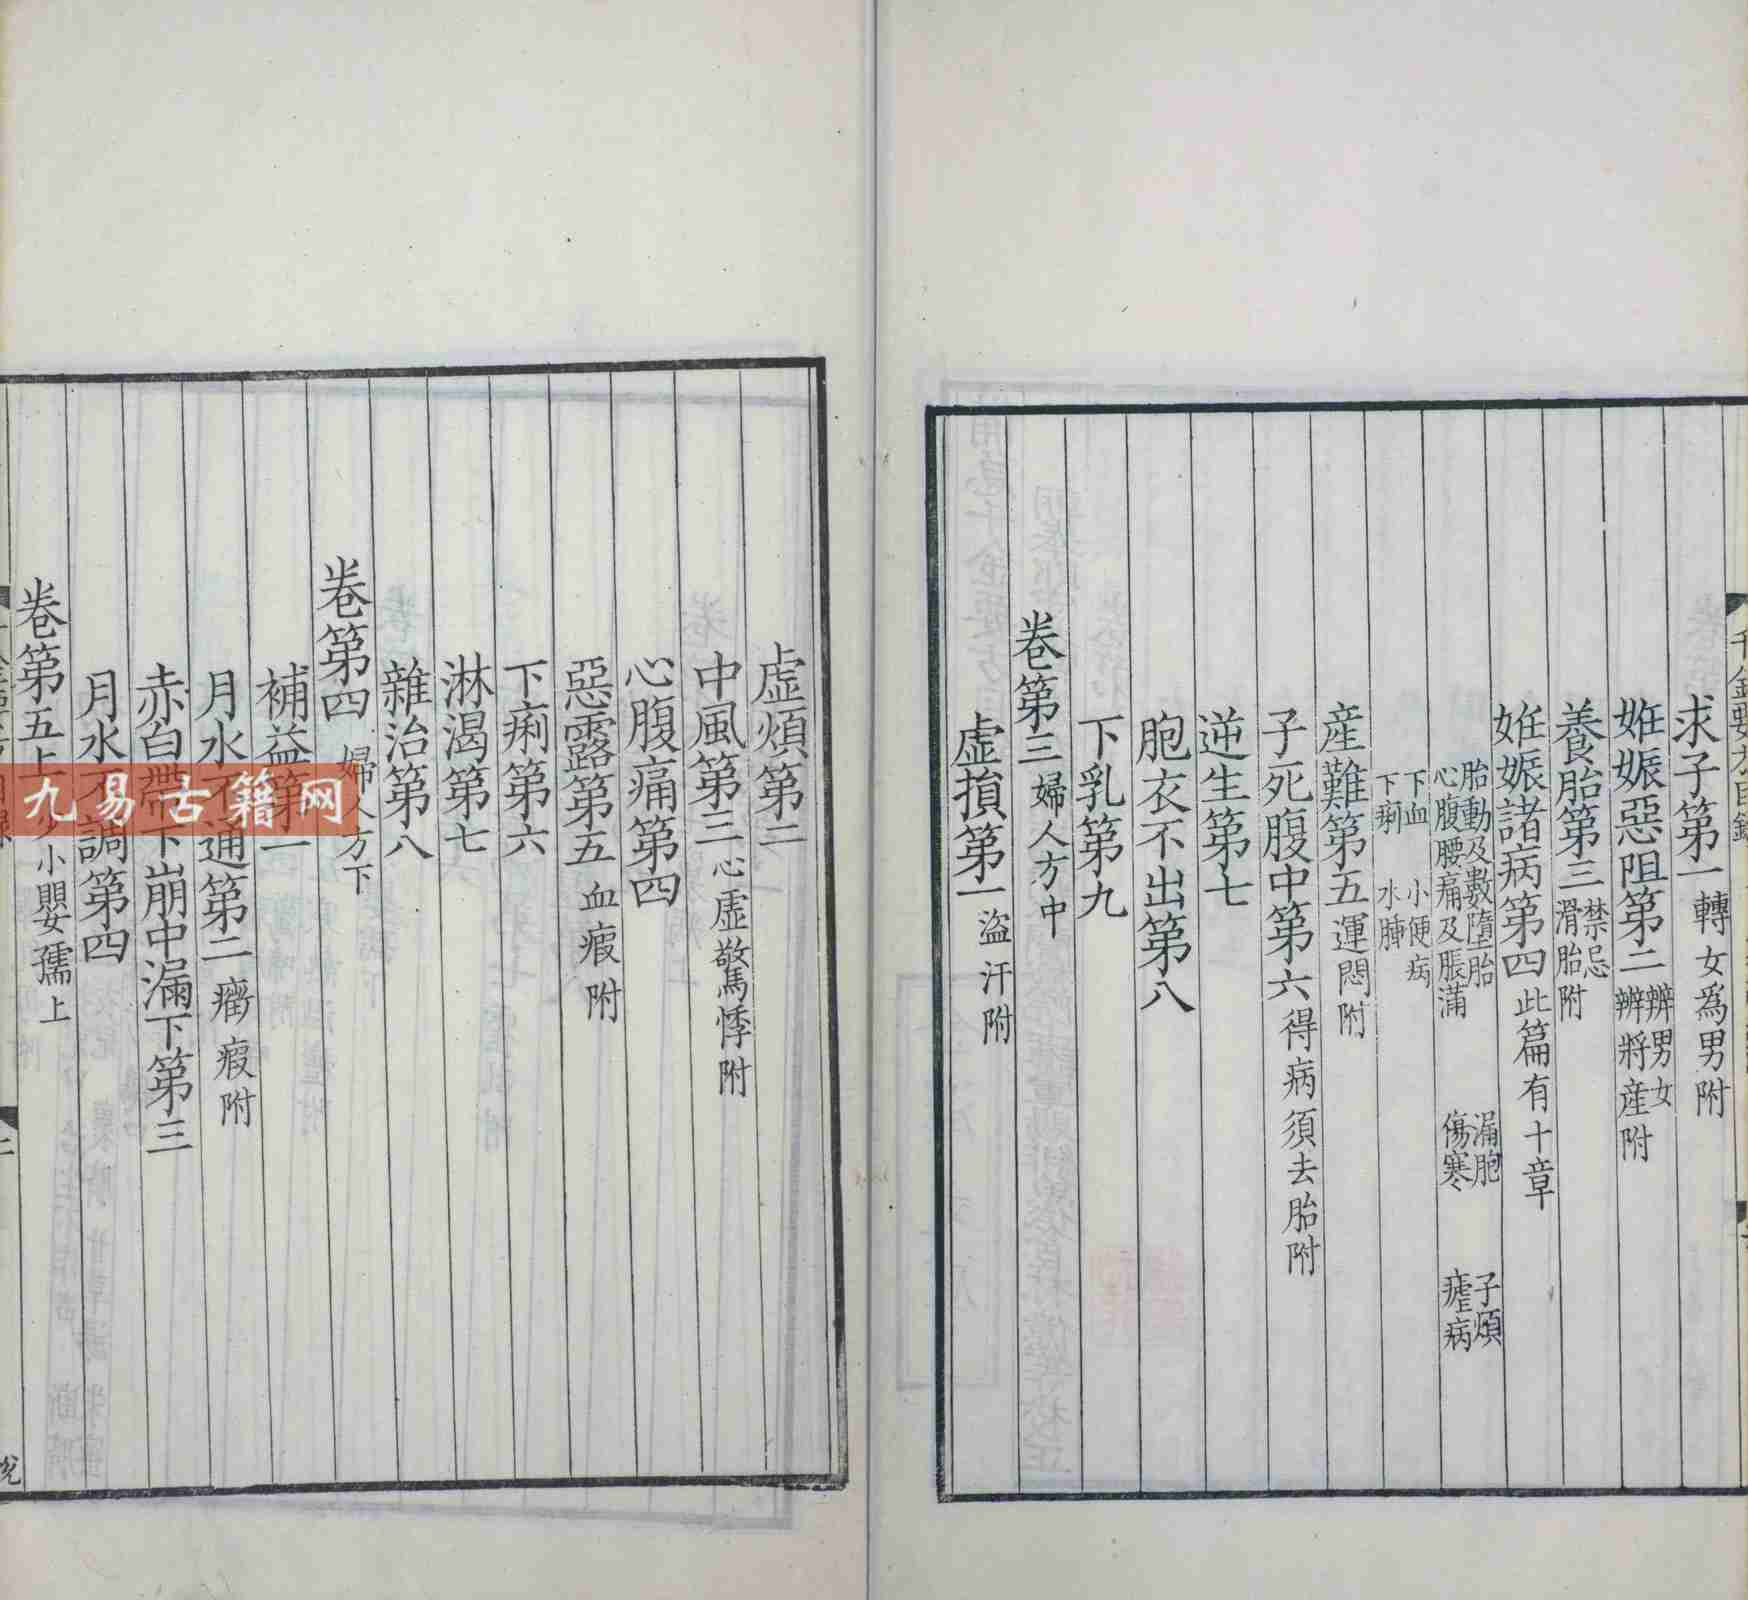 求子第一 轉女爲男附
姙娠惡阻第二 辨男女 辨將産附
養胎第三 禁忌 滑胎附
姙娠諸病第四 此篇有十章
胎動及數墮胎 漏胞 子煩
心腹腰痛及脹滿 傷寒 瘧病
下血 小便病
下痢 水腫
産難第五 運悶附
子死腹中第六 得病須去胎附
逆生第七
胞衣不出第八
下乳第九
卷第三 婦人方中
虛損第一 盜汗附
虛煩第二
中風第三 心虛驚悸附
心腹痛第四
惡露第五 血瘕附
下痢第六
淋渴第七
雜治第八
卷第四 婦人方下
補益第一
月水不通第二 癥瘕附
赤白帶下崩中漏下第三
月水不調第四
卷第五上 少小嬰孺上
九易古籍网